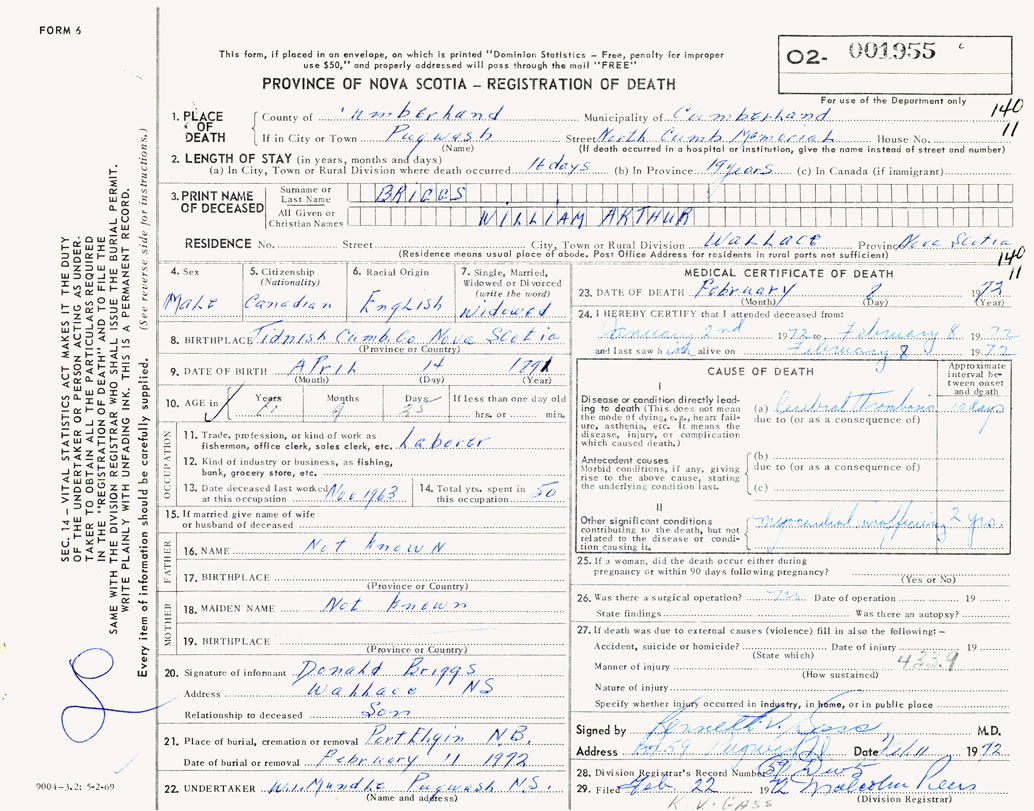 FORM 6
This form, if placed in an envelope, on which is printed "Dominion Statistics – Free, penalty for improper
use $50," and properly addressed will pass through the mail "FREE"
O2- 001955
For use of the Department only
PROVINCE OF NOVA SCOTIA – REGISTRATION OF DEATH
140
11
1. PLACE OF DEATH County of umberland Municipality of Cumberland
If in City or Town Pugwash Street North Cumb Memorial House No.
(Name) (If death occurred in a hospital or institution, give the name instead of street and number)
2. LENGTH OF STAY (in years, months and days)
(a) In City, Town or Rural Division where death occurred 16 days (b) In Province 79 years (c) In Canada (if immigrant)
3. PRINT NAME OF DECEASED Surname or Last Name BRIGGS
All Given or Christian Names WILLIAM ARTHUR
RESIDENCE No. Street City, Town or Rural Division Wallace Province Nova Scotia
(Residence means usual place of abode. Post Office Address for residents in rural parts not sufficient)
140
11
4. Sex Male
5. Citizenship (Nationality) Canadian
6. Racial Origin English
7. Single, Married, Widowed or Divorced (write the word) Widowed
8. BIRTHPLACE Tidnish Cumb. Co Nova Scotia
(Province or Country)
9. DATE OF BIRTH April 14
(Month) (Day) (Year)
10. AGE in Years Months 9 Days If less than one day old
hrs. or min.
OCCUPATION
11. Trade, profession, or kind of work as
fisherman, office clerk, sales clerk, etc. Laborer
12. Kind of industry or business, as fishing,
bank, grocery store, etc.
13. Date deceased last worked at this occupation Nov 1963
14. Total yrs. spent in this occupation 50
15. If married give name of wife
or husband of deceased
FATHER
16. NAME Not Known
17. BIRTHPLACE
(Province or Country)
MOTHER
18. MAIDEN NAME Not Known
19. BIRTHPLACE
(Province or Country)
20. Signature of informant Donald Briggs
Address Wallace NS
Relationship to deceased Son
21. Place of burial, cremation or removal Port Elgin N.B.
Date of burial or removal February 11 1972
22. UNDERTAKER Pugwash N.S.
(Name and address)
MEDICAL CERTIFICATE OF DEATH
23. DATE OF DEATH February 8 1972
(Month) (Day) (Year)
24. I HEREBY CERTIFY that I attended deceased from:
January 2nd 1972 to February 8 1972
and last saw him alive on February 8 1972
CAUSE OF DEATH
Approximate interval between onset and death
I
Disease or condition directly leading to death (This does not mean the mode of dying, e.g., heart failure, asthenia, etc. It means the disease, injury, or complication which caused death.)
(a) Cerebral thrombosis 10 days
due to (or as a consequence of)
Antecedent causes
Morbid conditions, if any, giving rise to the above cause, stating the underlying condition last.
(b)
due to (or as a consequence of)
(c)
II
Other significant conditions contributing to the death, but not related to the disease or condition causing it.
myocardial insufficiency 2 yrs.
25. If a woman, did the death occur either during
pregnancy or within 90 days following pregnancy?
(Yes or No)
26. Was there a surgical operation? no Date of operation 19
State findings Was there an autopsy?
27. If death was due to external causes (violence) fill in also the following: –
Accident, suicide or homicide? Date of injury 19
(State which)
4339
Manner of injury
(How sustained)
Nature of injury
Specify whether injury occurred in industry, in home, or in public place
Signed by M.D.
Address Box 59 Pugwash Date Feb. 11 1972
28. Division Registrar's Record Number
29. Filed Feb. 22 1972 Malcolm Peers
(Division Registrar)
K. V. GASS
SEC. 14 – VITAL STATISTICS ACT MAKES IT THE DUTY
OF THE UNDERTAKER OR PERSON ACTING AS UNDER-
TAKER TO OBTAIN ALL THE PARTICULARS REQUIRED
IN THE "REGISTRATION OF DEATH" AND TO FILE THE
SAME WITH THE DIVISION REGISTRAR WHO SHALL ISSUE THE BURIAL PERMIT.
WRITE PLAINLY WITH UNFADING INK. THIS IS A PERMANENT RECORD.
Every item of information should be carefully supplied. (See reverse side for instructions.)
9004-3.2: 5-2-69